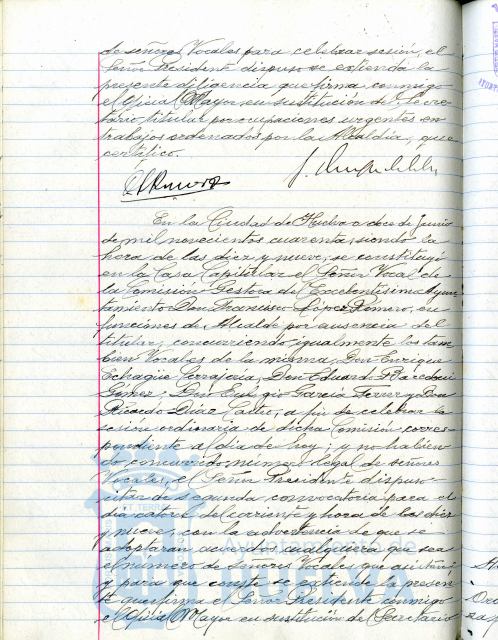 de señores Vocales para celebrar sesión, el
Señor Presidente dispuso se extienda la
presente diligencia que firma conmigo
el Oficial Mayor en sustitución del Secre-
tario titular por ocupaciones urgentes en
trabajos ordenados por la Alcaldía, que
certifico.
En la Ciudad de Huelva a doce de Junio
de mil novecientos cuarenta, siendo la
hora de las diez y nueve, se constituyó
en la Casa Capitular el Señor Vocal de
la Comisión Gestora del Excelentísimo Ayun-
tamiento Don Francisco López Romero, en
funciones de Alcalde por ausencia del
titular, concurriendo igualmente los tam-
bien Vocales de la misma, Don Enrique
Echagüe, Don Eduardo
Gomez, Don Eulogio García y Don
Ricardo Díaz Castro, a fin de celebrar la
sesión ordinaria de dicha Comisión corres-
pondiente al día de hoy, y no habien-
do concurrido número legal de señores
Vocales, el Señor Presidente dispuso
citar de segunda convocatoria para el
día catorce del corriente y hora de las diez
y nueve con la advertencia de que se
adoptarán acuerdos cualquiera que sea
el número de Señores Vocales que asistan
y para que conste se extiende la presen-
te que firma el Señor Presidente conmigo
el Oficial Mayor en sustitución del Secretario
Ayuntamiento de
HUELVA